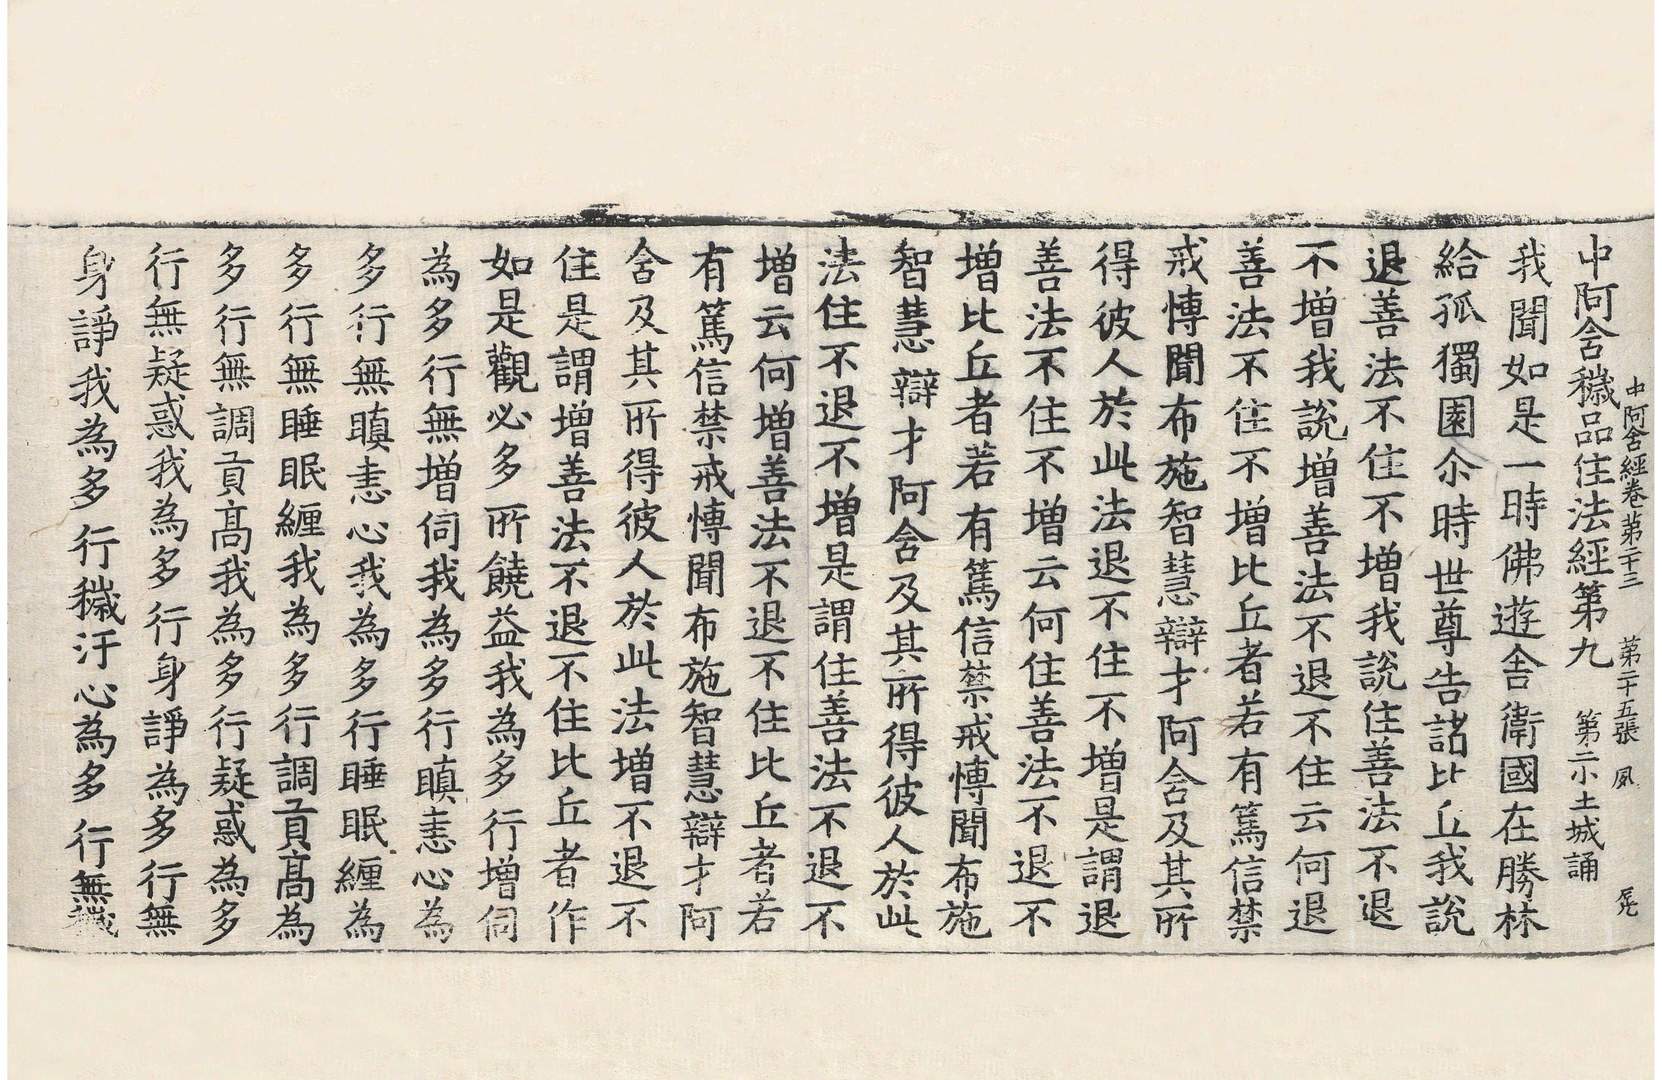 中阿含經卷第二十三　第二十五張　夙
中阿含穢品住法經第九　第二小土城誦
我聞如是一時佛遊舍衛國在勝林
給孤獨園尒時世尊告諸比丘我說
退善法不住不增我說住善法不退
不增我說增善法不退不住云何退
善法不住不增比丘者若有篤信禁
戒慱聞布施智慧辯才阿含及其所
得彼人於此法退不住不增是謂退
善法不住不增云何住善法不退不
增比丘者若有篤信禁戒慱聞布施
智慧辯才阿含及其所得彼人於此
法住不退不增是謂住善法不退不
增云何增善法不退不住比丘者若
有篤信禁戒慱聞布施智慧辯才阿
含及其所得彼人於此法增不退不
住是謂增善法不退不住比丘者作
如是觀必多所饒益我為多行增伺
為多行無增伺我為多行瞋恚心為
多行無瞋恚心我為多行睡眠纏為
多行無睡眠纏我為多行調貢高為
多行無調貢高我為多行疑惑為多
行無疑惑我為多行身諍為多行無
身諍我為多行穢汙心為多行無穢